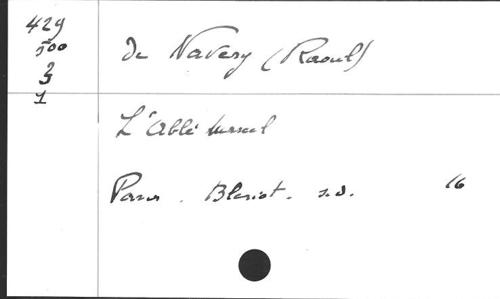 429
500
3
1
De Navery (Raoul)
L'Abbé Marcel
Paris . Bleriot . s.d. 16